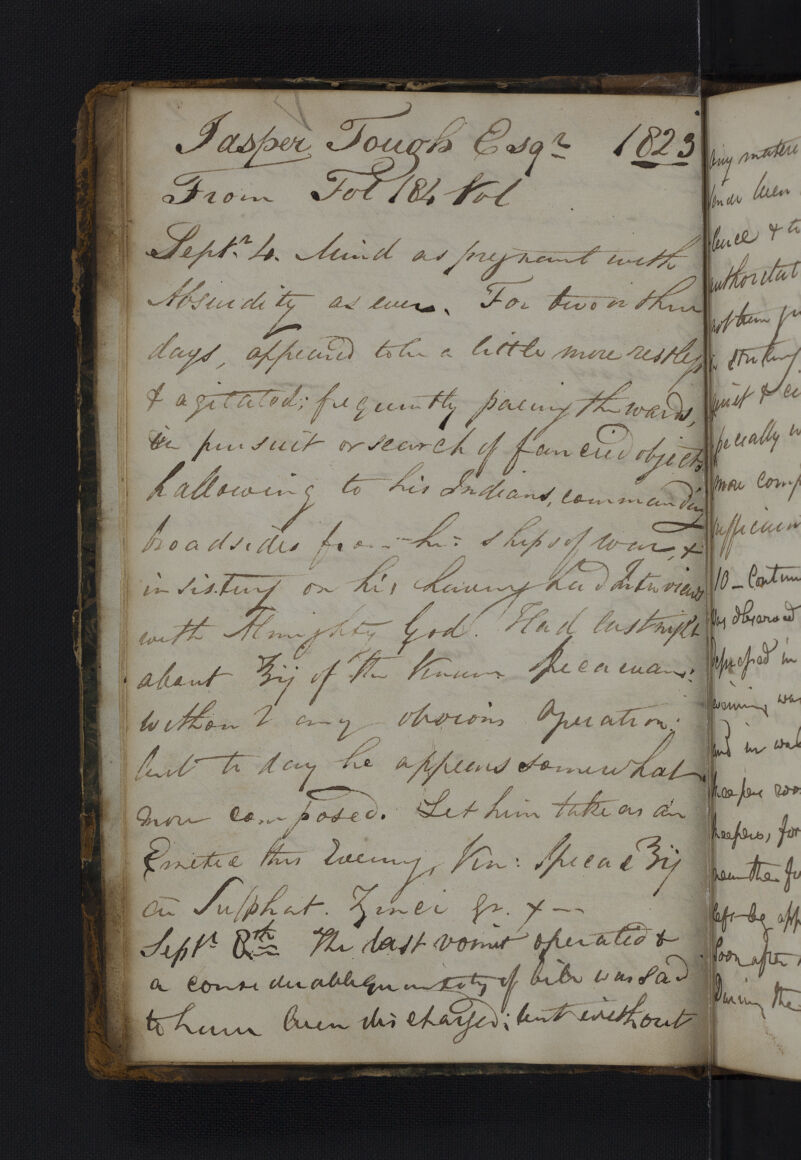 Jasper Tough Esqr 1823
From Fol 184 Vol
Septr 4. Mind as pregnant with
Absurdity as ever. For two or three
days, appeared to be a little more restless
& agitated; frequently pacing the wards,
in pursuit or search of fancied objects
hallowing to his Indians, commanding
broadsides from his ships of war, &
insisting on his having had Interviews
with Almighty God. Had last night
about ʒij of the Vinum Ipecacuan:
without any obvious operation:
but to day he appears somewhat
more composed. Let him take as an
Emetic this Evening, Vin: Ipecac ʒij
Sulphat. Zinci gr. x —
Septr 8th The last vomit operated &
a considerable quantity of bile was said
to have been discharged; but without
any
10 – Contin
observed
in
was
and in
keepers
keepers, for
app
Soon after
During the